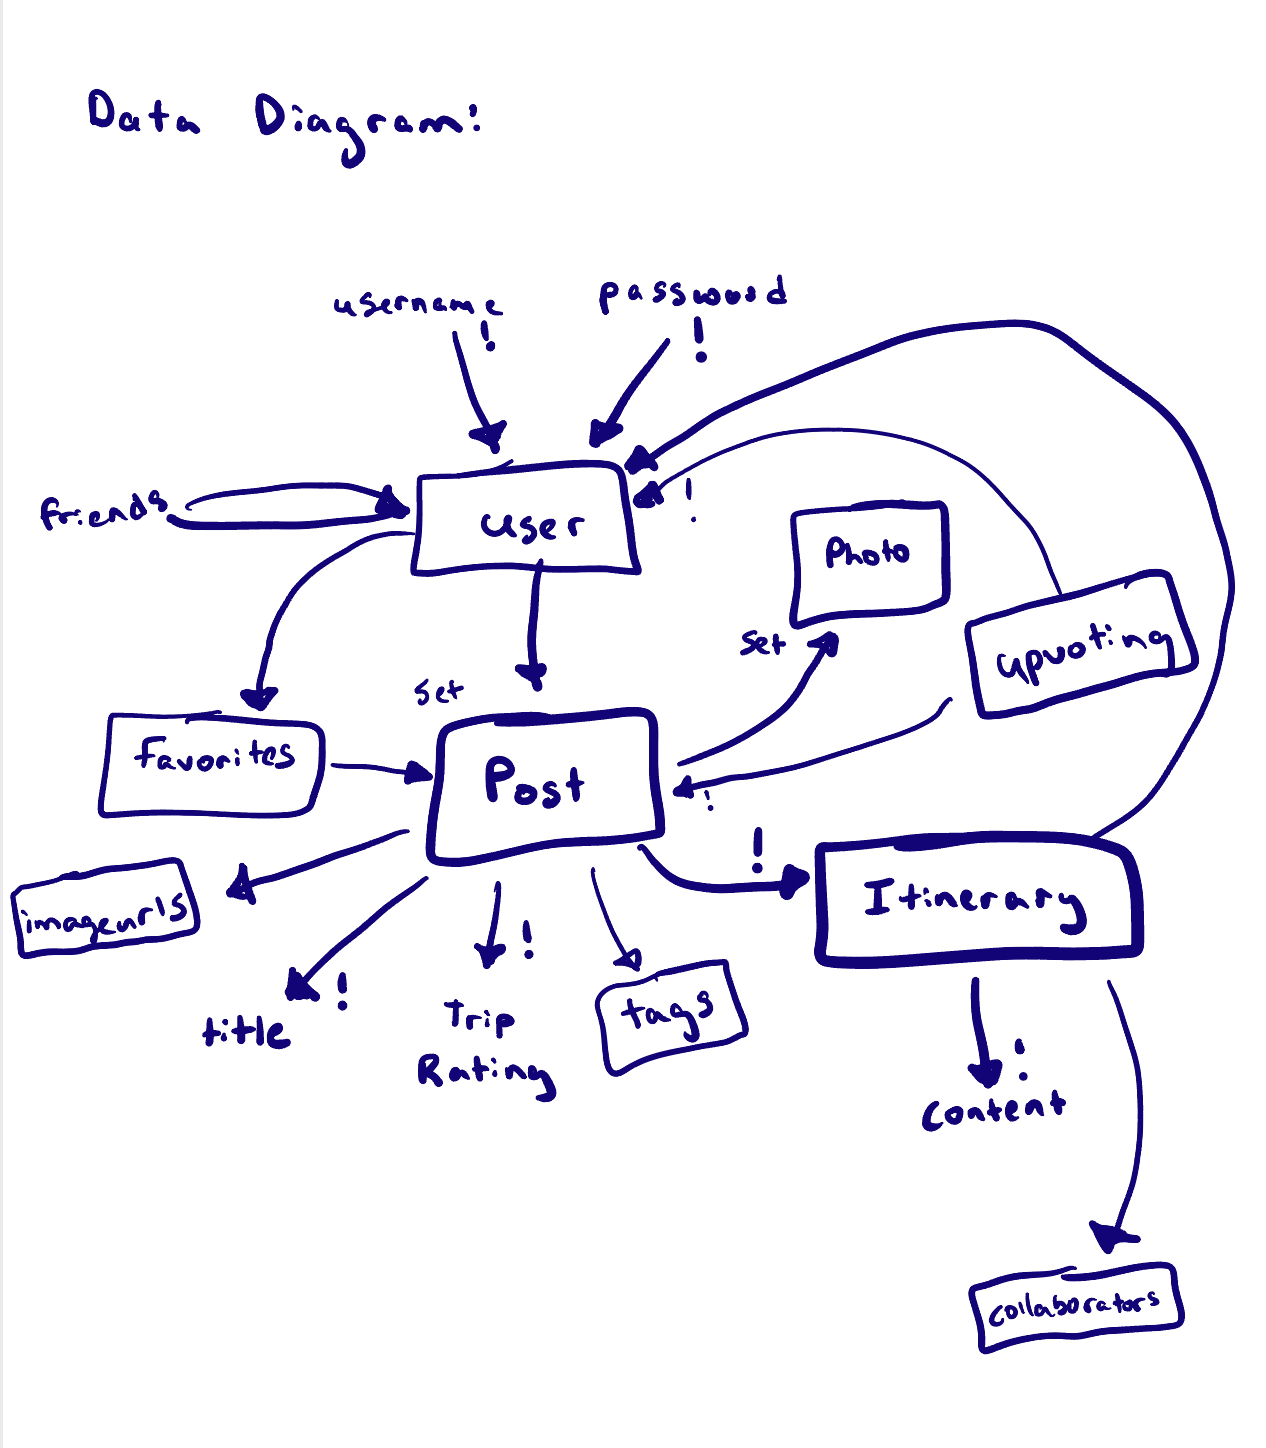 Data Diagram:
username
!
password
!
friends
user
!
Photo
set
upvoting
set
favorites
Post
!
!
Itinerary
imageurls
title
!
Trip
Rating
!
tags
content
!
collaborators